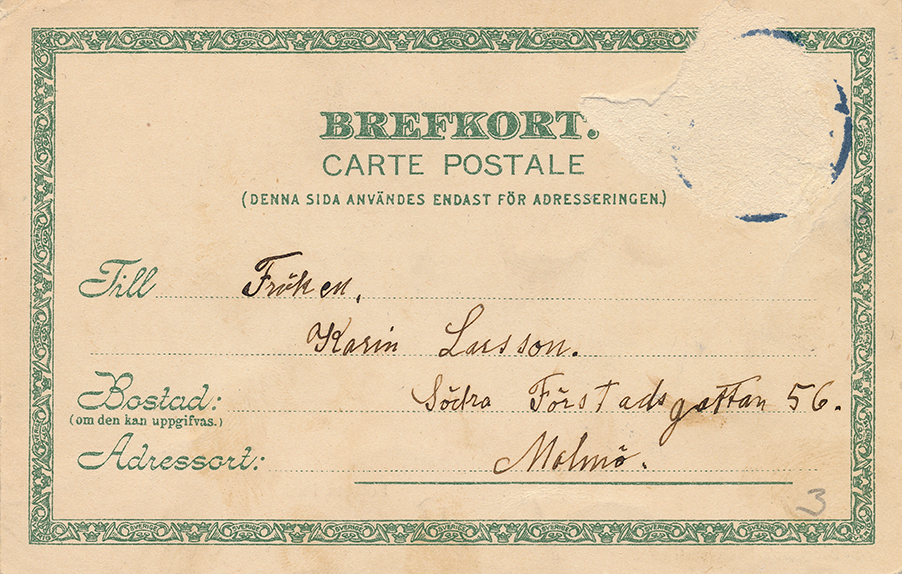 BREFKORT.
CARTE POSTALE
(DENNA SIDA ANVÄNDES ENDAST FÖR ADRESSERINGEN.)
Till Fröken,
Karin Larsson.
Bostad: Södra Förstadsgattan 56.
(om den kan uppgifvas.)
Adressort: Malmö.
3